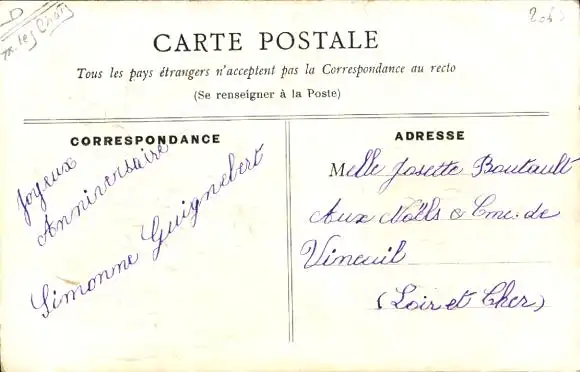 D
CARTE POSTALE
Tous les pays étrangers n'acceptent pas la Correspondance au recto
(Se renseigner à la Poste)
CORRESPONDANCE
Joyeux
Anniversaire
Simonne Guignebert
ADRESSE
Melle Josette Boutault
Aux Noëls Cme. de
Vineuil
(Loir et Cher)